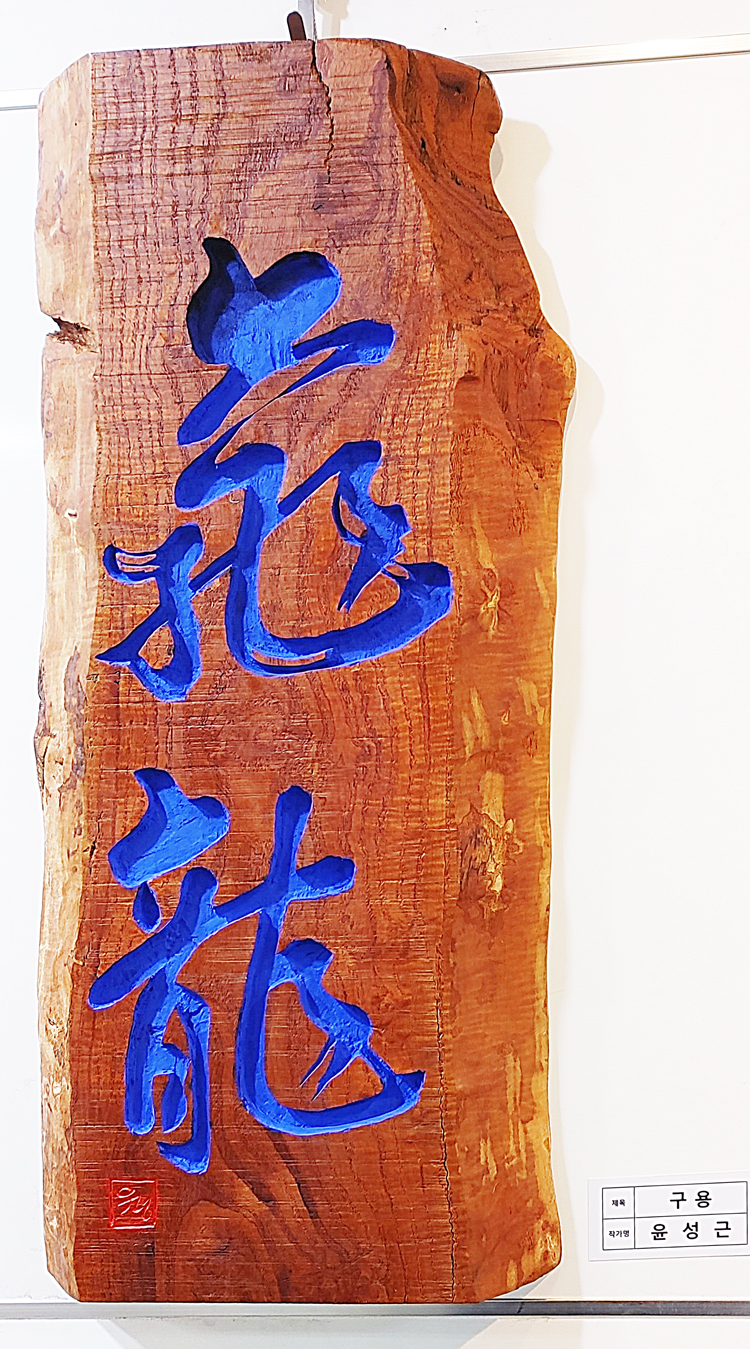 龜
龍
제목 구용
작가명 윤성근